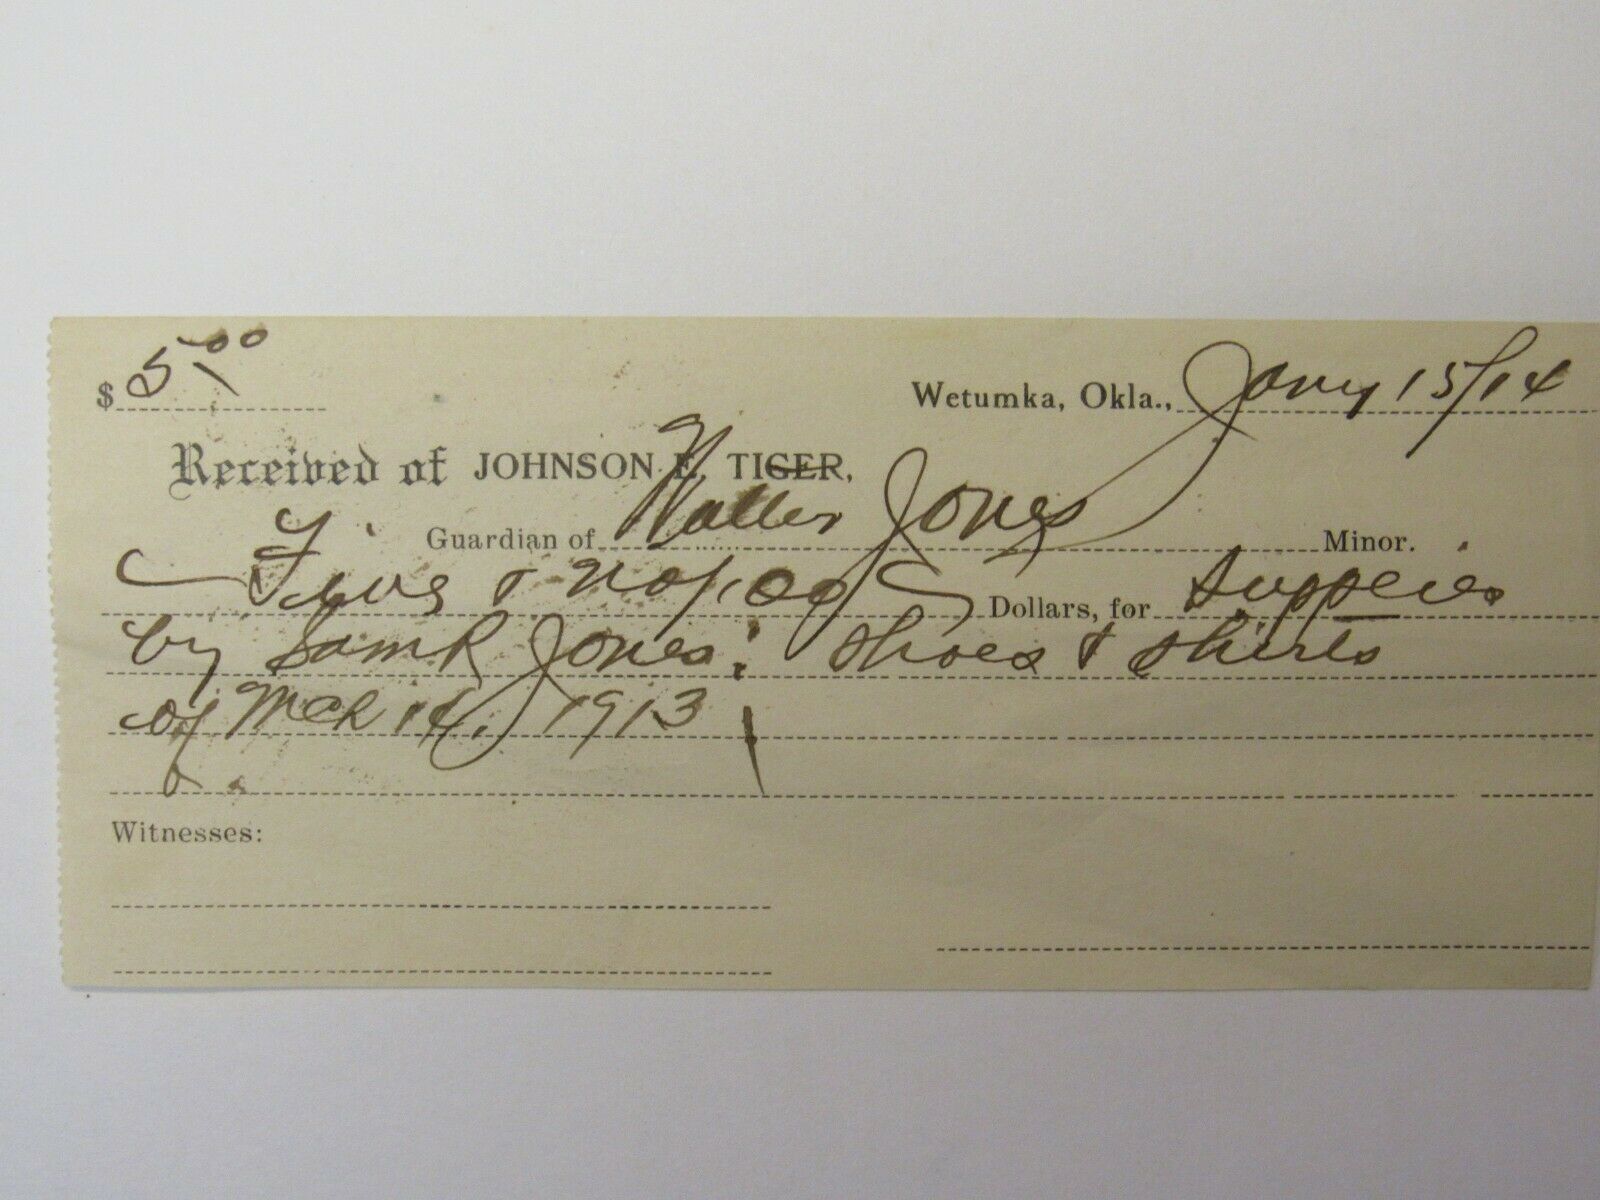 $ 5.00
Wetumka, Okla., Jany 15/14
Received of JOHNSON E. TIGER,
Guardian of Walter Jones Minor.
Five & no/100 Dollars, for Supplies
by Sam R Jones: Shoes & Shirts
of Mch 14, 1913
Witnesses: